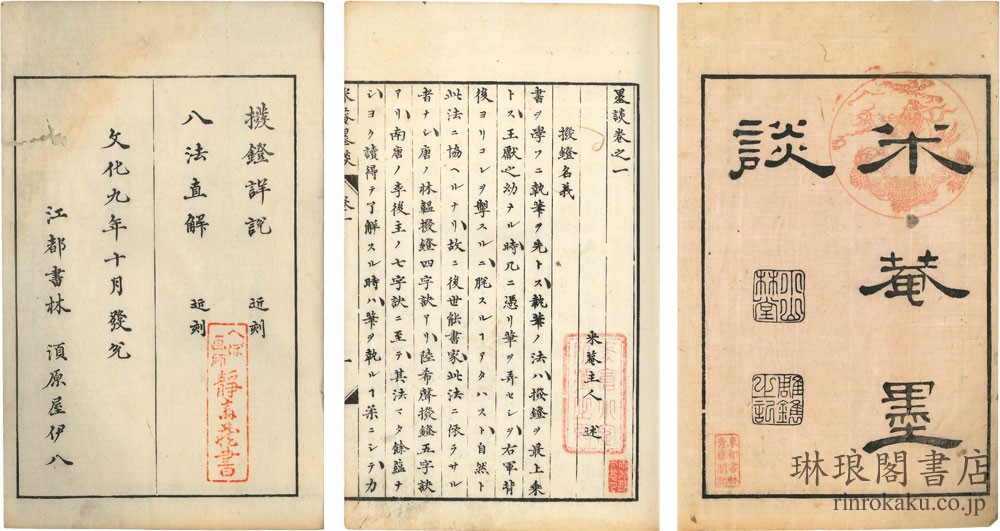 米菴墨
談
小山林堂
墨談卷之一
撥鐙名義
米菴主人 述
書ヲ學フニ執筆ヲ先トス執筆ノ法ハ撥鐙ヲ最上乘
トス王獻之幼ナル時几ニ憑リ筆ヲ弄セシヲ右軍背
後ヨリコレヲ掣スルニ脱スルヿアタハスト自然ト
此法ニ協ヘルナリ故ニ後世能書家此法ニ依ラサル
者ナシ唐ノ林韞撥鐙四字訣アリ陸希聲撥鐙五字訣
アリ南唐ノ李後主ノ七字訣ニ至テ其法マタ餘蘊ナ
シヨク讀得テ了解スル時ハ筆ヲ執ルヿ ニシテ力
米菴墨談 卷一
撥鐙詳說 近刻
八法直解 近刻
文化九年十月發兌
江都書林 須原屋伊八
琳琅閣書店
rinrokaku.co.jp